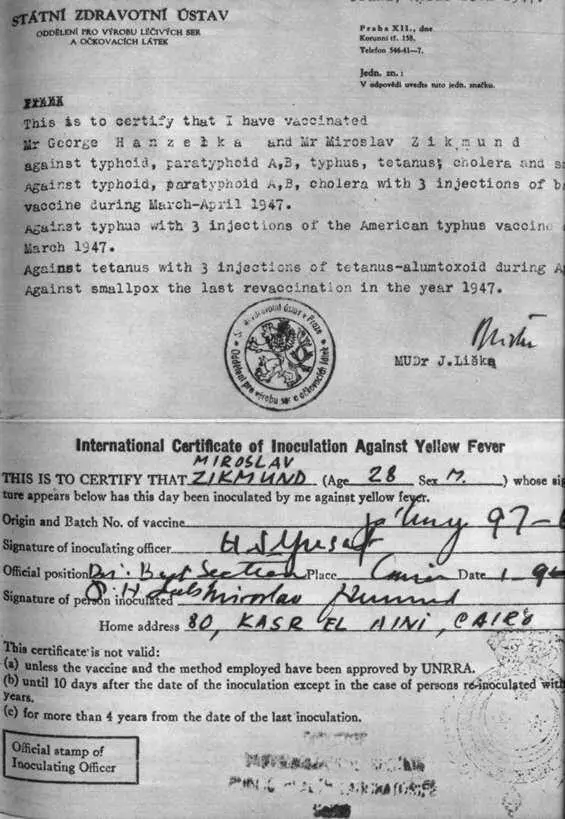 STÁTNÍ ZDRAVOTNÍ ÚSTAV
ODDĚLENÍ PRO VÝROBU LÉČIVÝCH SER
A OČKOVACÍCH LÁTEK
Praha XII., dne
Korunní tř. 158.
Telefon 546-41—7.
Jedn. zn.:
V odpovědi uveďte tuto jedn. značku.
This is to certify that I have vaccinated
Mr George H a n z e l k a and Mr Miroslav Z i k m u n d
against typhoid, paratyphoid A,B, typhus, tetanus, cholera and
Against typhoid, paratyphoid A,B, cholera with 3 injections of
vaccine during March-April 1947.
Against typhus with 3 injections of the American typhus vaccine
March 1947.
Against tetanus with 3 injections of tetanus-alumtoxoid during
Against smallpox the last revaccination in the year 1947.
MUDr J.Liška
International Certificate of Inoculation Against Yellow Fever
MIROSLAV
THIS IS TO CERTIFY THAT ZIKMUND (Age 28 Sex M. ) whose
ture appears below has this day been inoculated by me against yellow fever.
Origin and Batch No. of vaccine 97-
Signature of inoculating officer
Official position Section Place Cairo Date
Signature of person inoculated Miroslav Zikmund
Home address 80, KASR EL AINI, CAIRO
This certificate is not valid:
(a) unless the vaccine and the method employed have been approved by UNRRA.
(b) until 10 days after the date of the inoculation except in the case of persons re-inoculated
years.
(c) for more than 4 years from the date of the last inoculation.
Official stamp of
Inoculating Officer